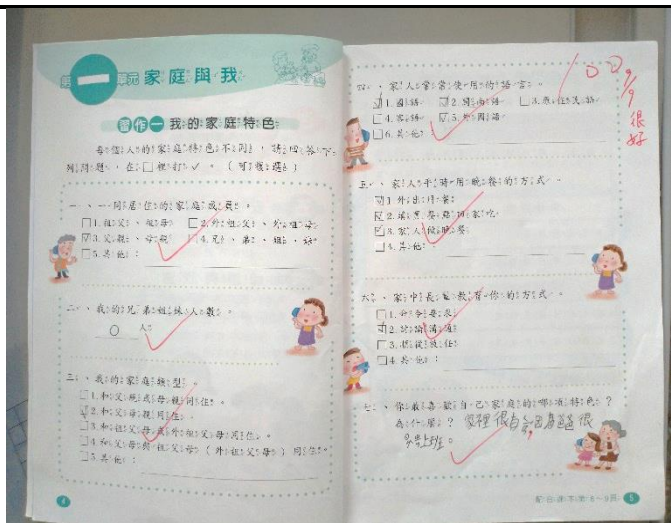 第一單元 家庭與我
習作一 我的家庭特色
每個人的家庭特色不同，請回答下
列問題，在□裡打✓。（可複選）
一、一同居住的家庭成員。
□1.祖父、祖母 □2.外祖父、外祖母
☑3.父親、母親 □4.兄、弟、姐、妹
□5.其他：
二、我的兄弟姐妹人數。
0 人
三、我的家庭類型。
□1.和父親或母親同住。
☑2.和父母親同住。
□3.和祖父母或外祖父母同住。
□4.和父母與祖父母（外祖父母）同住。
□5.其他：
4
四、家人常常使用的語言。
☑1.國語 ☑2.閩南語 □3.原住民語
□4.客語 ☑5.外國語
□6.其他：
9/9
很
好
五、家人平時用晚餐的方式
☑1.外出用餐
☑2.購買餐點回家吃
☑3.家人做晚餐
□4.其他：
六、家中長輩教育你的方式
□1.命令要求
☑2.討論溝通
□3.順從放任
□4.其他：
七、你最喜歡自己家庭的哪項特色？
為什麼？ 家裡很自由因為爸爸很
早上班。
配合課本第8～9頁 5